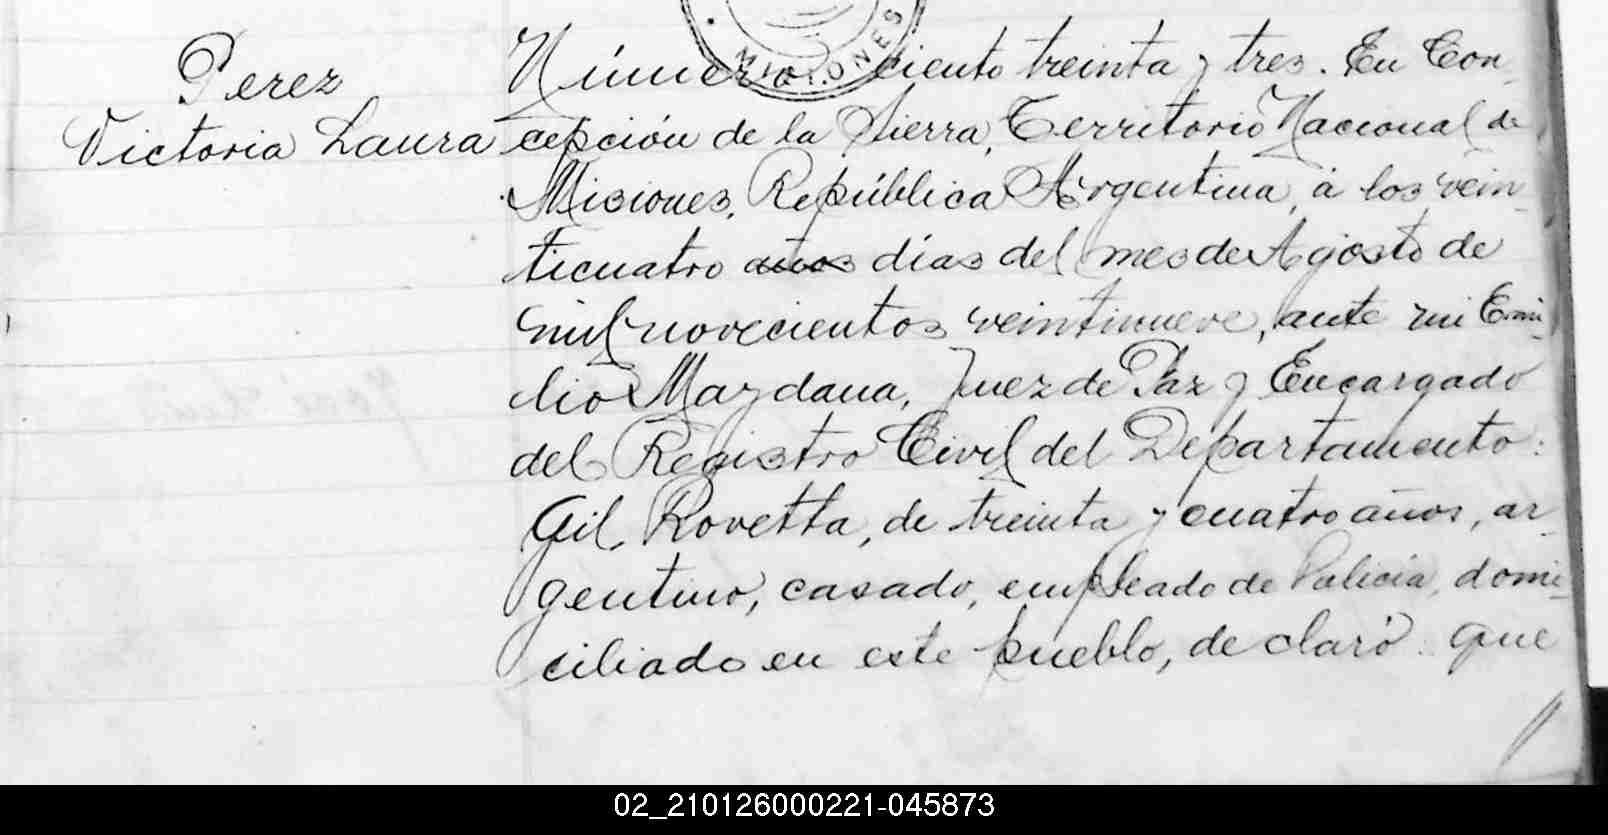 MISIONES
Perez
Victoria Laura
Número ciento treinta y tres. En Con-
cepción de la Sierra, Territorio Nacional de
Misiones, República Argentina, á los vein-
ticuatro años días del mes de Agosto de
mil novecientos veintinueve, ante mi Emi-
lio Maydana, Juez de Paz y Encargado
del Registro Civil del Departamento:
Gil Rovetta, de treinta y cuatro años, ar-
gentino, casado, empleado de Policia, domi-
ciliado en este pueblo, declaró: que
02_210126000221-045873